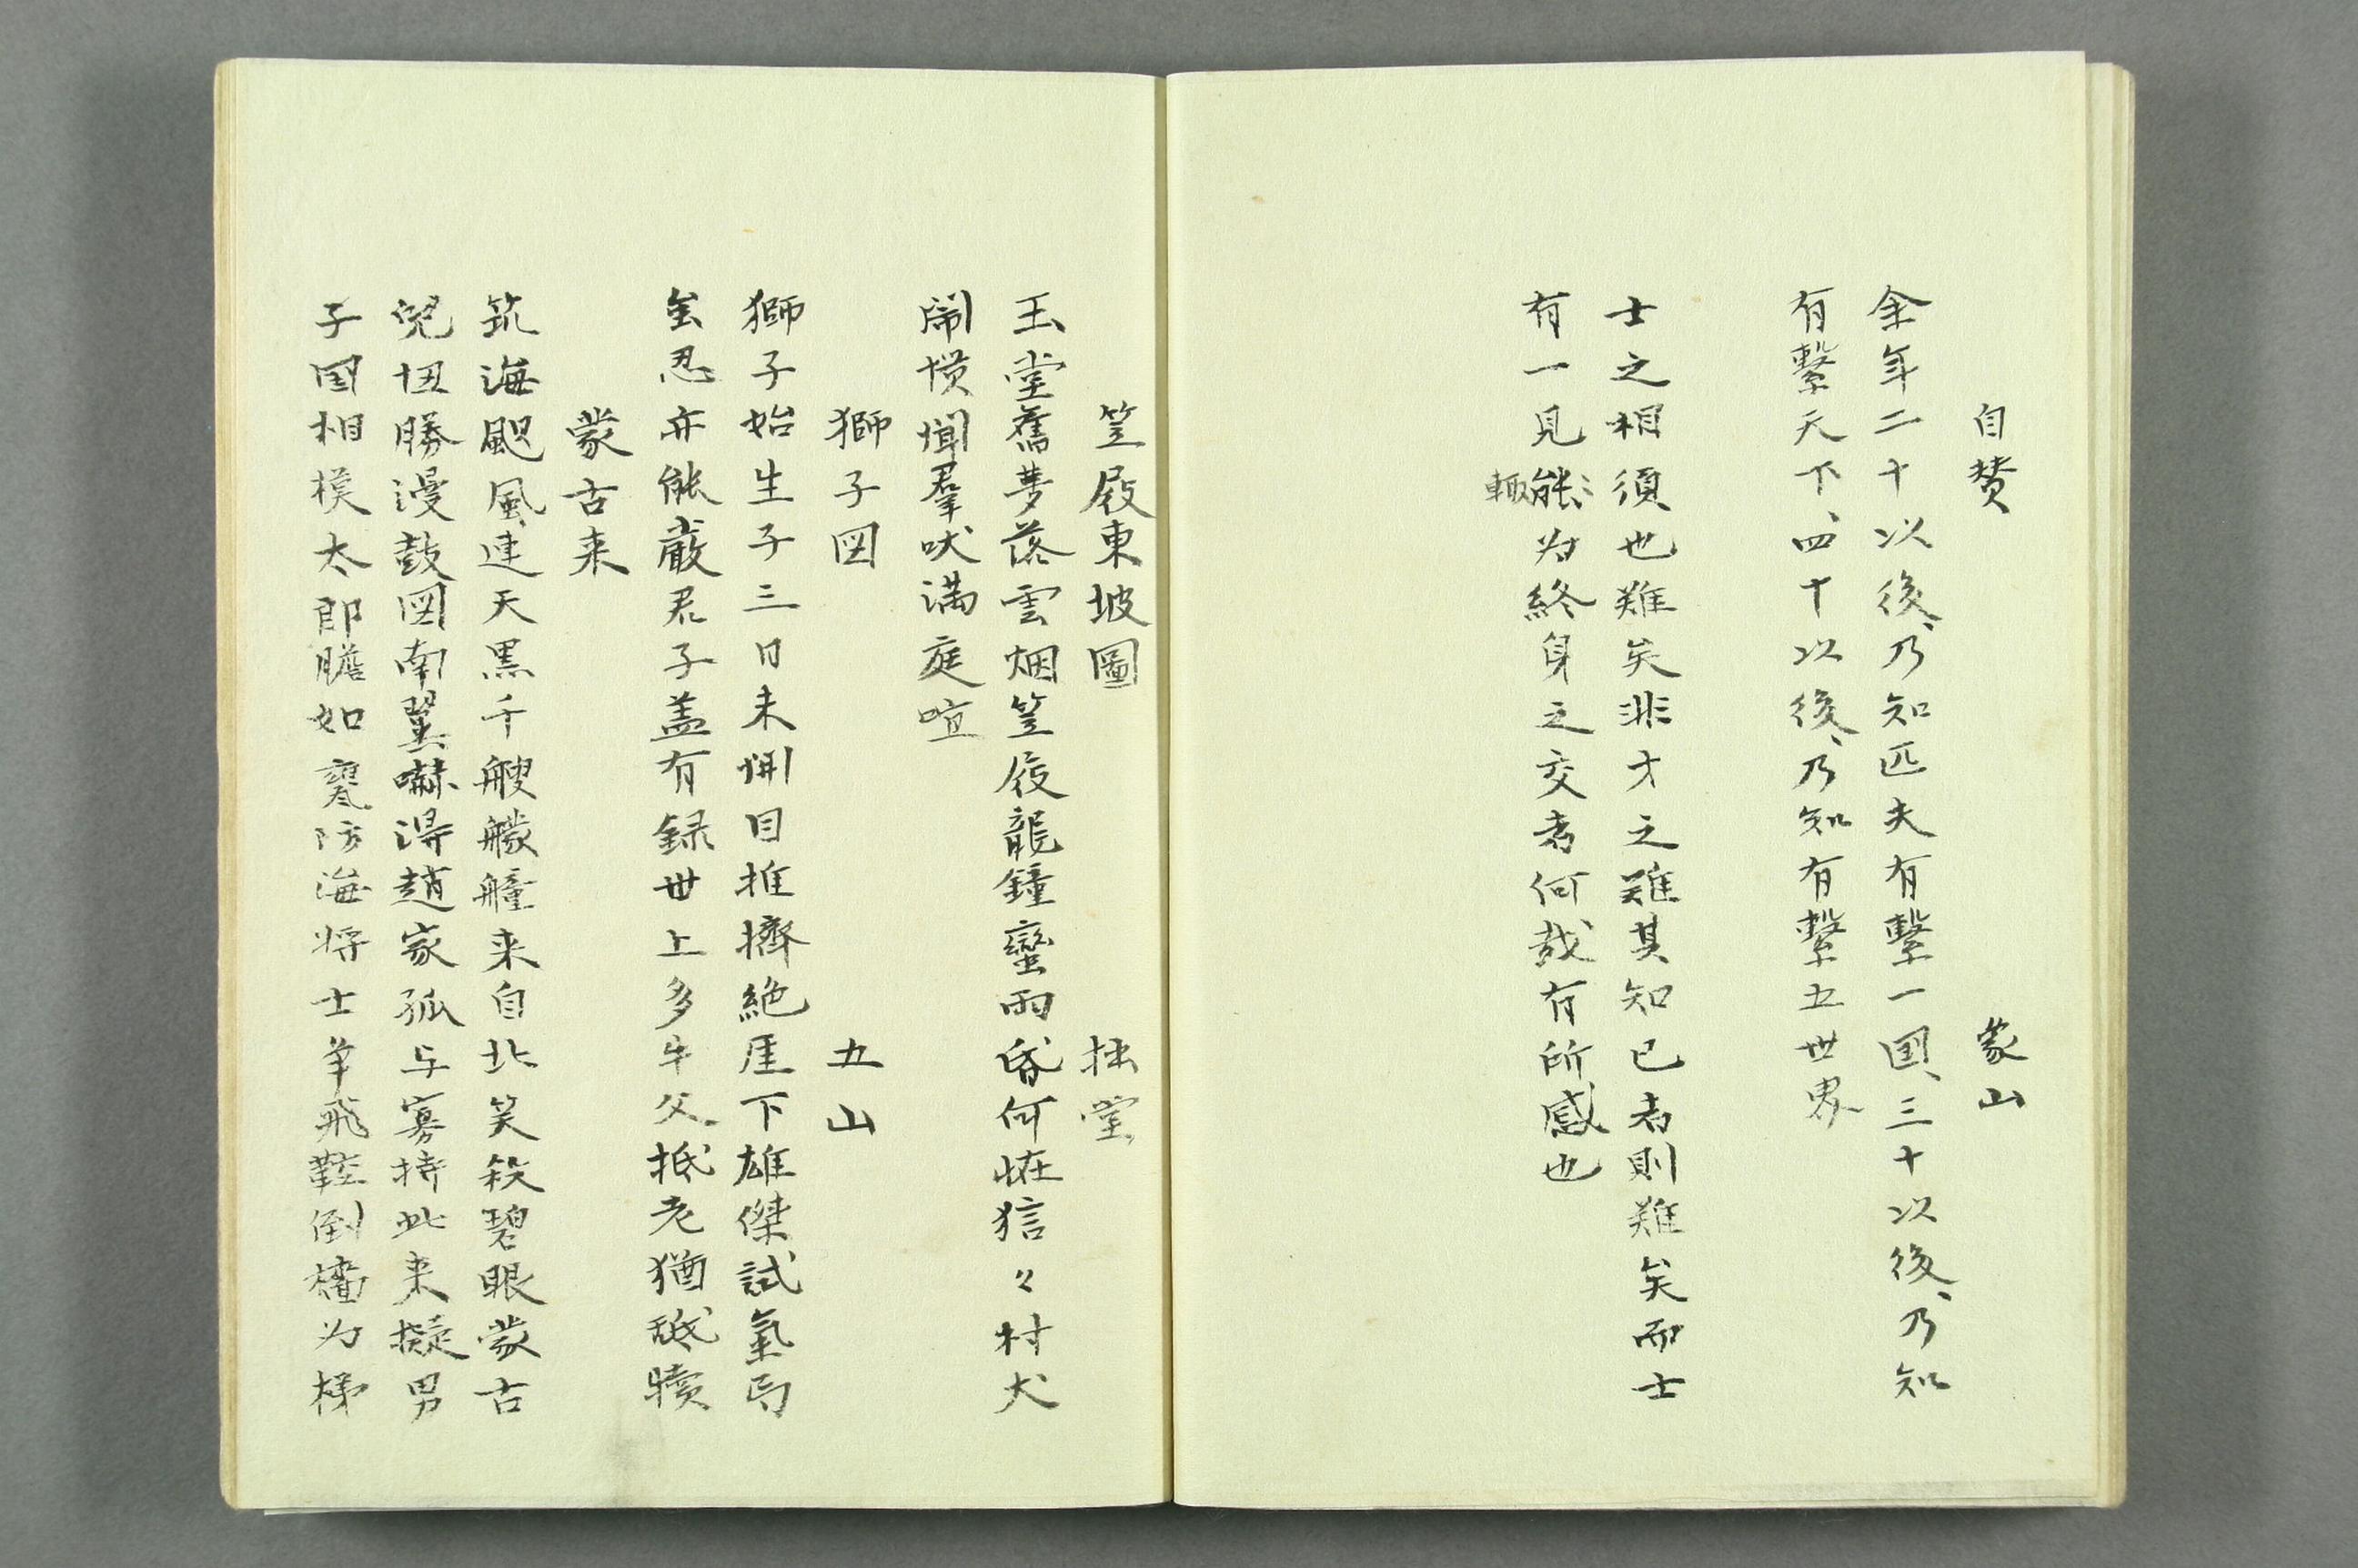 自賛　象山
余年二十以後、乃知匹夫有繫一国、三十以後、乃知
有繫天下、四十以後、乃知有繫五世界
士之相須也難矣非才之難其知已者則難矣而士
有一見能為終身之交者何哉有所感也
輙
笠屐東坡圖　拙堂
玉堂舊夢落雲烟笠屐龍鐘蠻雨昏何恠狺々村犬
鬧慣聞羣吠満庭喧
獅子図　五山
獅子始生子三日未開目推擠絶厓下雄傑試氣
忍亦能嚴君子盖有録世上多牛父抵老猶舐犢
蒙古来
筑海颶風連天黒千艘艨艟来自北笑殺碧眼蒙古
児忸勝漫鼓図南翼嚇得趙家孤与寡持此来擬男
子国相模太郎膽如甕防海将士争飛鞚倒檣为梯